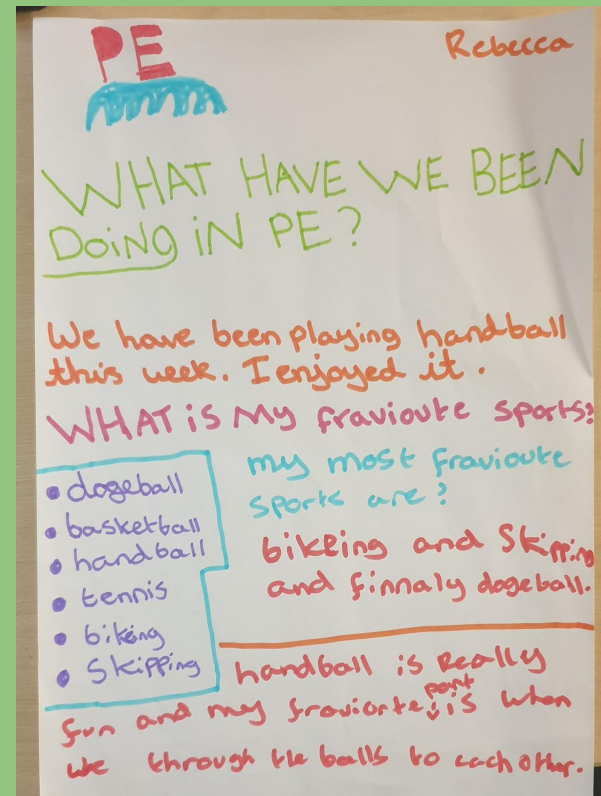 PE
Rebecca
WHAT HAVE WE BEEN
DoiNg iN PE?
We have been playing handball
this week. I enjoyed it.
WHAT iS My fravioute sports?
• dogeball
• basketball
• handball
• tennis
• biking
• Skipping
my most fravioute
sports are?
bikeing and Skipping
and finnaly dogeball.
handball is Really
fun and my fraviorte part is when
we through the balls to each other.